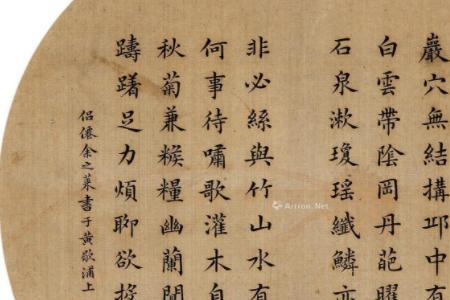 巖穴無結搆邱中有
白雲帶陰岡丹葩曜
石泉漱瓊瑤纖鱗亦
非必絲與竹山水有
何事待嘯歌灌木自
秋菊兼糇糧幽蘭間
躊躇足力煩聊欲
侶僊余之萊書于黃歇浦上
Artron.Net